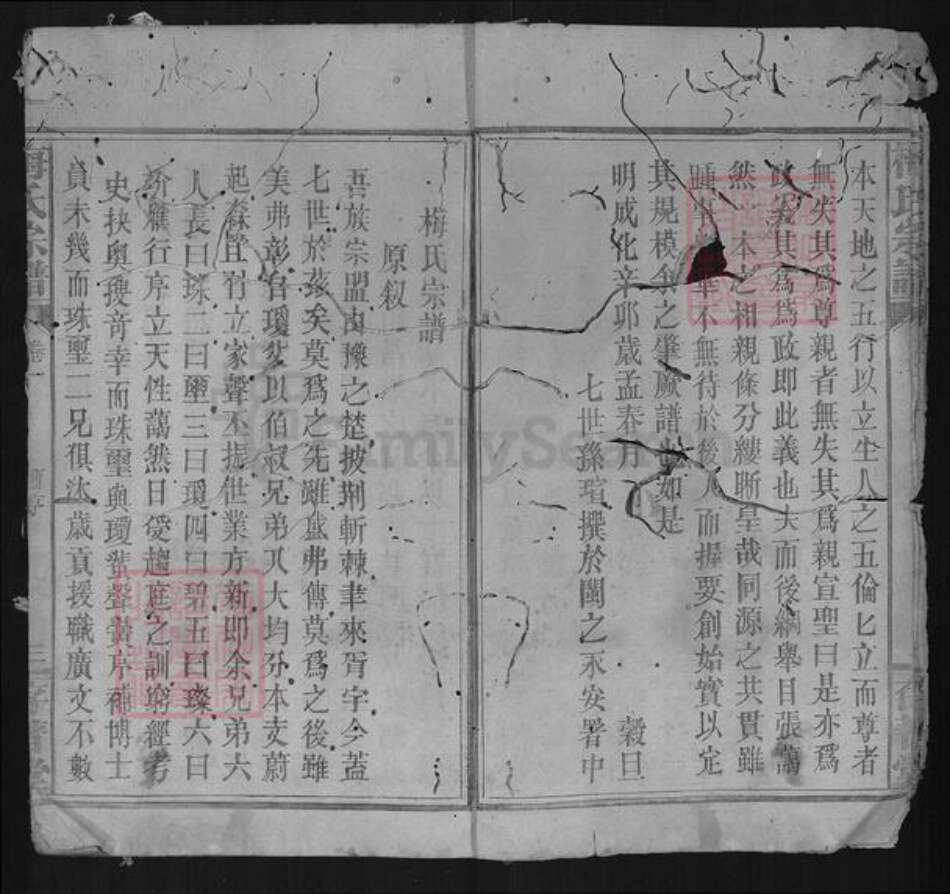 本天地之五行以立生人之五倫匕立而尊者
無失其爲尊親者無失其爲親宣聖曰是亦爲
政奚其爲爲政即此義也夫而後綱舉目張藹
然一本之相親條分縷晰皇哉同源之共貫雖
踵事增華不無待於後人而握要創始實以定
其規模余之肇厥譜也如是
明成化辛卯歲孟春月 穀旦
七世孫瑄撰於閩之永安署中
梅氏宗譜
原叙
吾族宗盟由豫之楚披荆斬棘聿來胥宇今蓋
七世於茲矣莫爲之先雖盛弗傳莫爲之後雖
美弗彰自瓊父以伯叔兄弟八大均分本支蔚
起森且竹立家聲丕振世業方新即余兄弟六
人長曰珠二曰璽三曰瓊四曰碧五曰璨六曰
玠雁行序立天性藹然日受趨庭之訓窮經考
史抉奥搜奇幸而珠璽與瓊蜚聲黌序補博士
員未幾而珠璽二兄俱汰歲貢援職廣文不數
梅氏宗譜 卷一 三